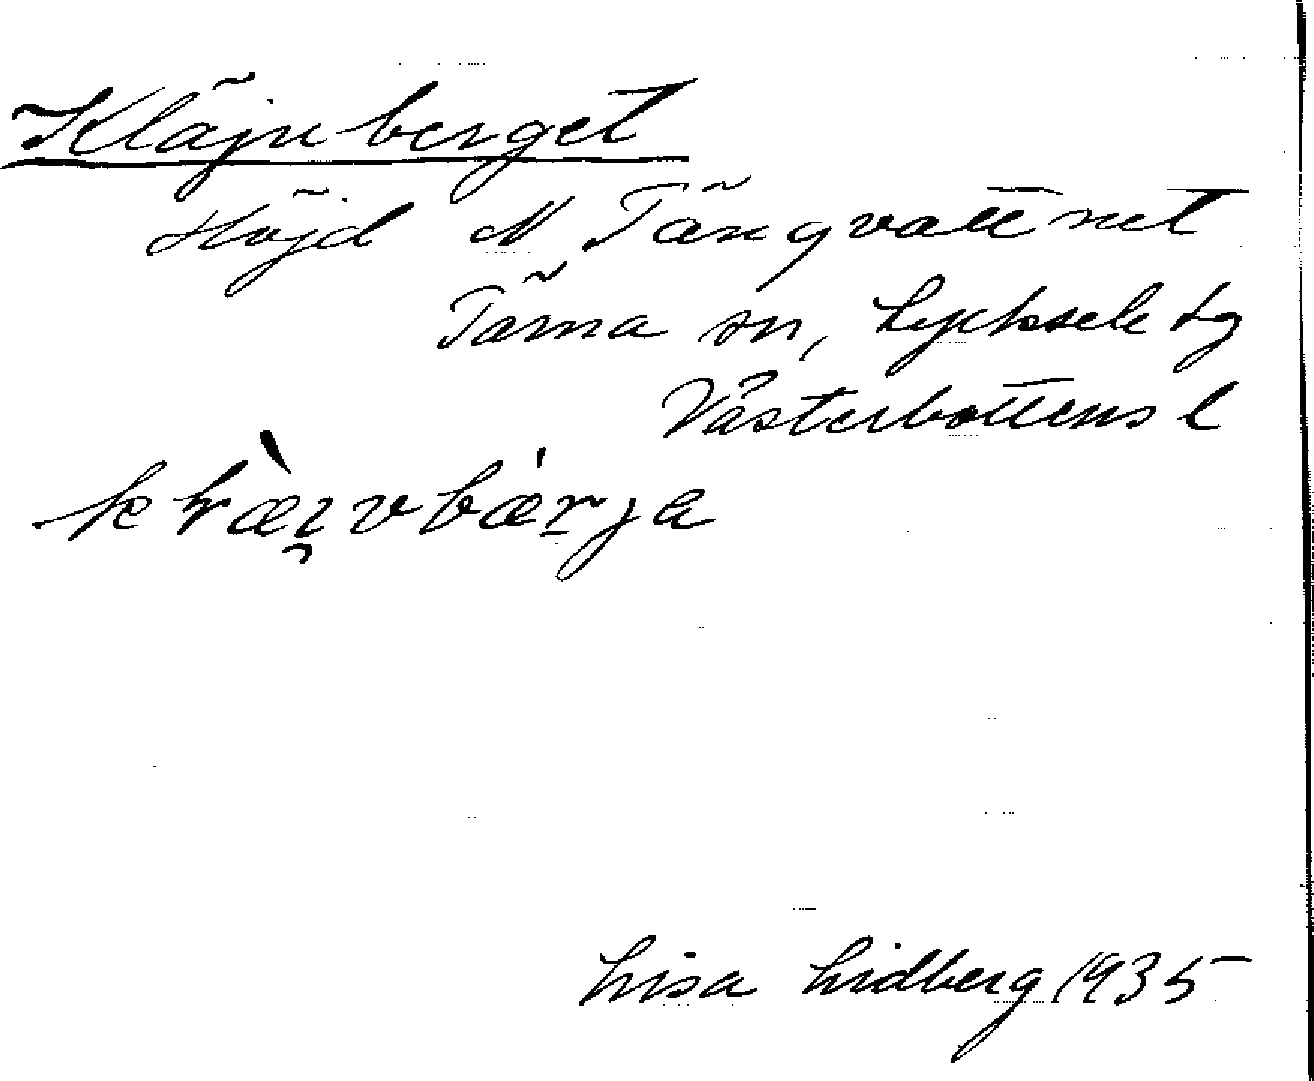 Kläjnberget
Höjd N Tängvattnet
Tärna sn, Lycksele tg
Västerbottens l
Lisa Lidberg 1935